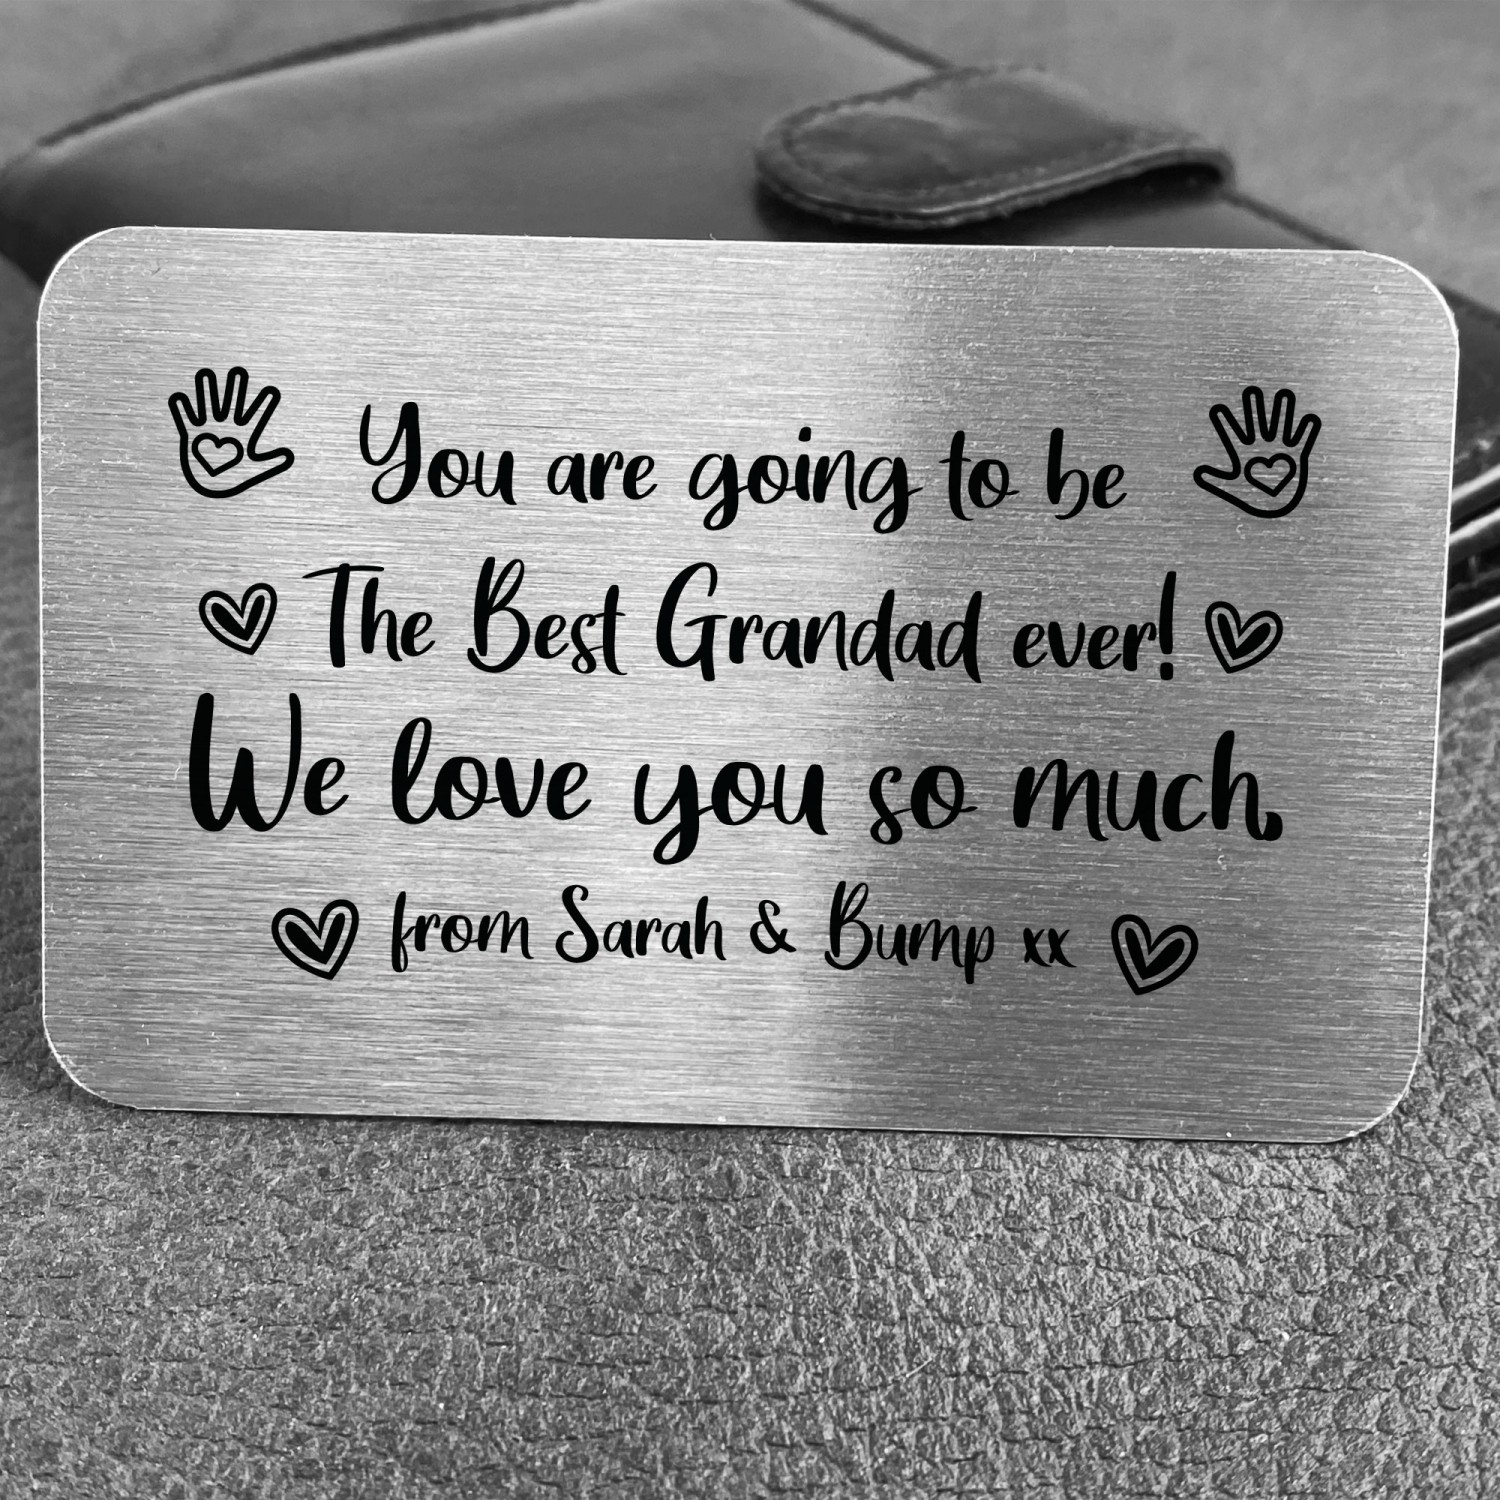 You are going to be
The Best Grandad ever!
We love you so much.
from Sarah & Bump xx